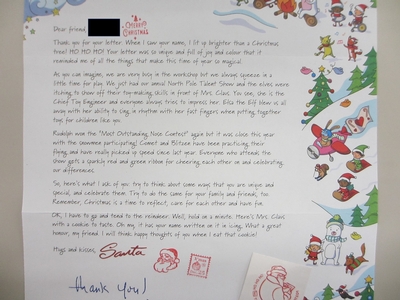 Dear friend,
MERRY
CHRISTMAS
Thank you for your letter. When I saw your name, I lit up brighter than a Christmas
tree! HO HO HO! Your letter was so unique and full of joy and colour that it
reminded me of all the things that make this time of year so magical.
As you can imagine, we are very busy in the workshop but we always squeeze in a
little time for play. We just had our annual North Pole Talent Show and the elves were
itching to show off their toy-making skills in front of Mrs. Claus. You see, she is the
Chief Toy Engineer and everyone always tries to impress her. Ella the Elf blew us all
away with her ability to sing in rhythm with her fast fingers when putting together
toys for children like you.
Rudolph won the "Most Outstanding Nose Contest" again but it was close this year
with the snowmen participating! Comet and Blitzen have been practising their
flying and have really picked up speed since last year. Everyone who attends the
show gets a sparkly red and green ribbon for cheering each other on and celebrating
our differences.
So, here's what I ask of you: try to think about some ways that you are unique and
special, and celebrate them. Try to do the same for your family and friends, too.
Remember, Christmas is a time to reflect, care for each other and have fun.
OK, I have to go and tend to the reindeer. Well, hold on a minute. Here's Mrs. Claus
with a cookie to taste. Oh my, it has your name written on it in icing. What a great
honour, my friend. I will think happy thoughts of you when I eat that cookie!
Hugs and kisses, Santa
thank you!